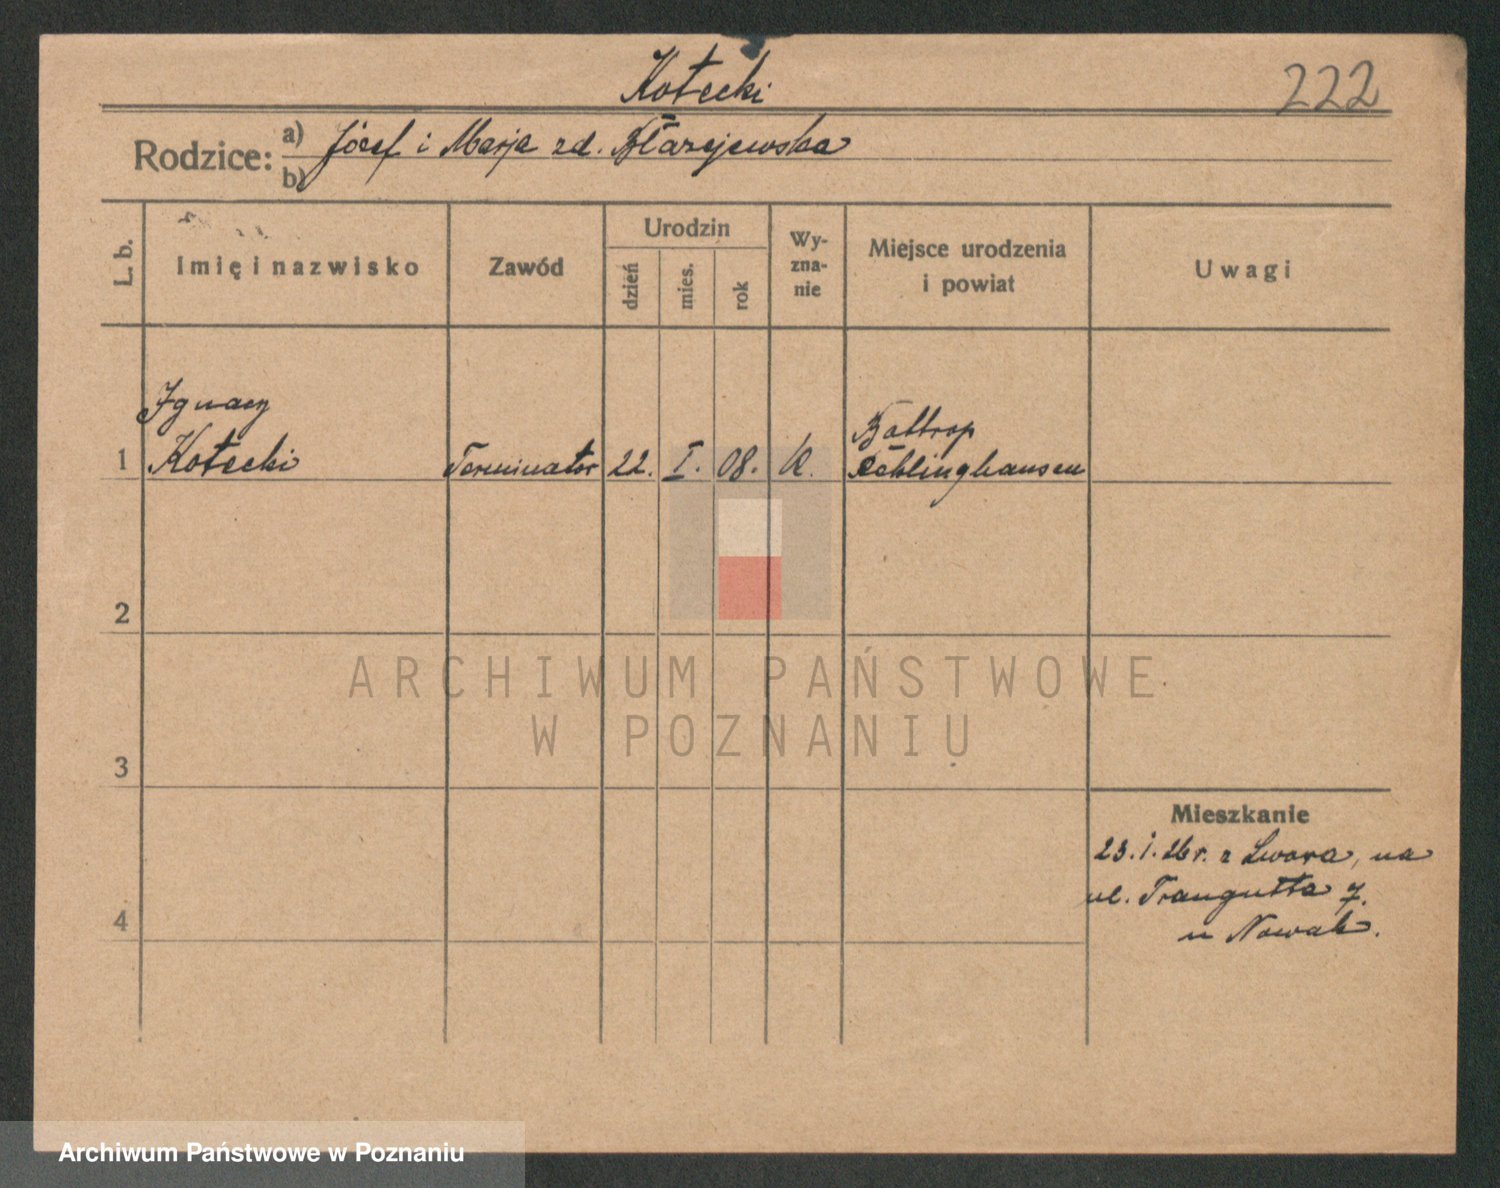 Kotecki
222
Rodzice:
a) Józef i Marja zd. Błażejewska
b)
L. b.
Imię i nazwisko
Zawód
Urodzin
dzień
mies.
rok
Wy-
zna-
nie
Miejsce urodzenia
i powiat
Uwagi
Ignacy
Bottrop
1 Kotecki Terminator 22. I. 08. K. Recklinghausen
2
ARCHIWUM PAŃSTWOWE
W POZNANIU
3
Mieszkanie
23.1.26r. z Lwowa, na
ul. Traugutta 7.
4
u Nowak.
Archiwum Państwowe w Poznaniu